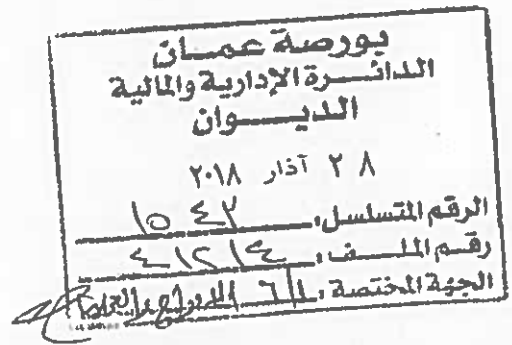 بورصة عمان
الدائرة الإدارية والمالية
الديوان
٢٨ آذار ٢٠١٨
الرقم المتسلسل: ١٥٤٢
رقم الملف: ٤١٢١٤
الجهة المختصة: